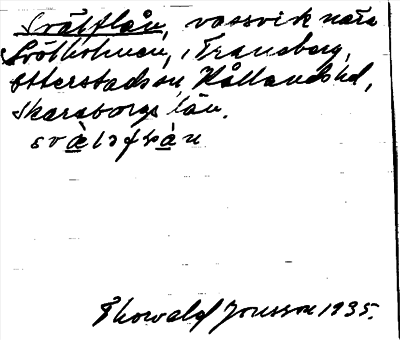 Svätflån, vassvik nära
Svölholmen, Traneberg,
Otterstads sn, Kållands hd,
Skaraborgs län.
Thorvald Jonsson 1935.